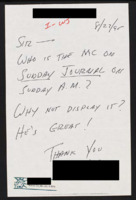 8/27/95
SIR —
WHO IS THE MC ON
SUNDAY JOURNAL ON
SUNDAY A.M.?
WHY NOT DISPLAY IT?
HE'S GREAT!
THANK YOU